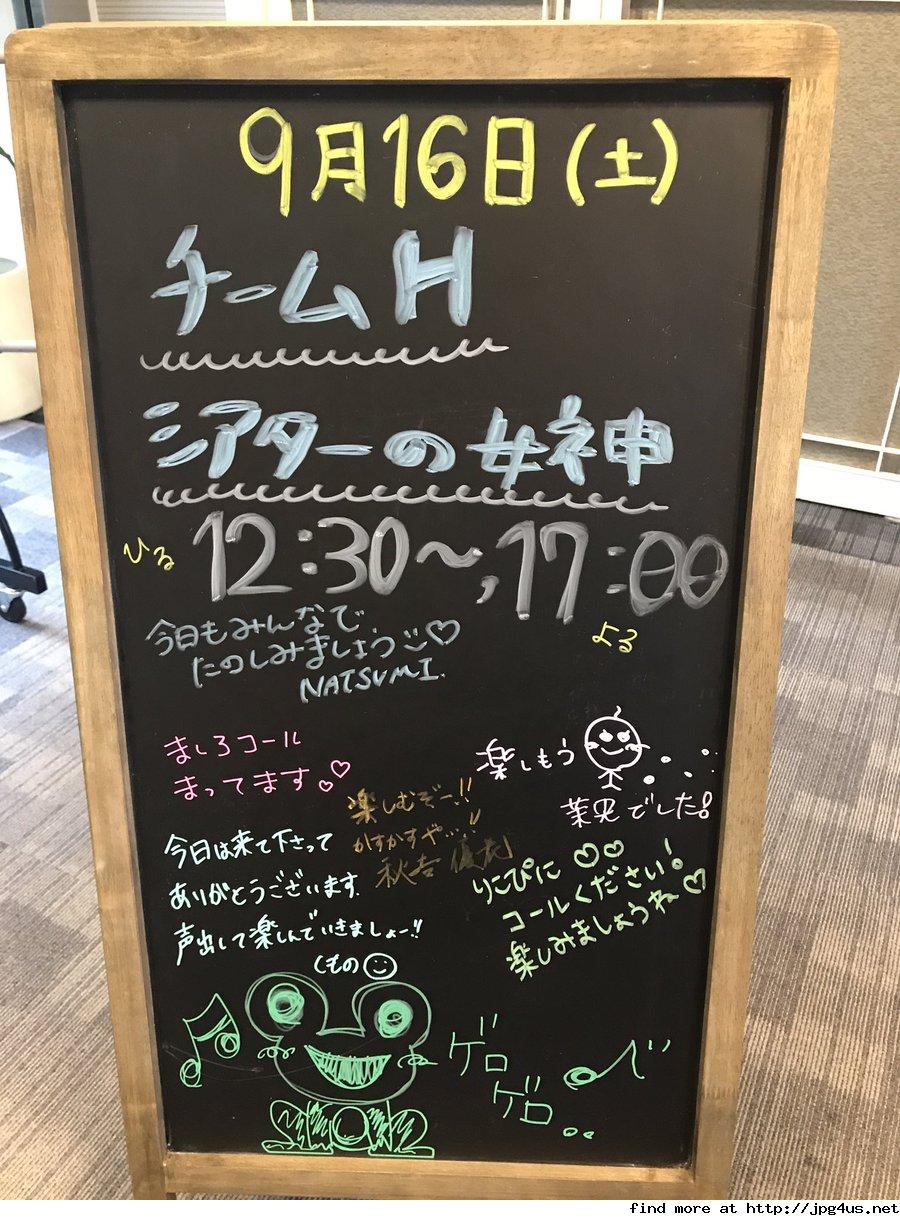 9月16日(土)
チームH
シアターの女神
ひる 12:30~, 17:00
よる
今日もみんなで
たのしみましょう♡
NATSUMI.
ましろコール
まってます♡♡
楽しもう
でした。
楽しむぞー!!
かすかすや...!
秋吉 優花
今日は来て下さって
ありがとうございます.
声出して楽しんでいきましょー!!
くもの
りこぴに ♡♡
コールください!
楽しみましょうね♡
ゲロ
ゲロ
find more at http://jpg4us.net